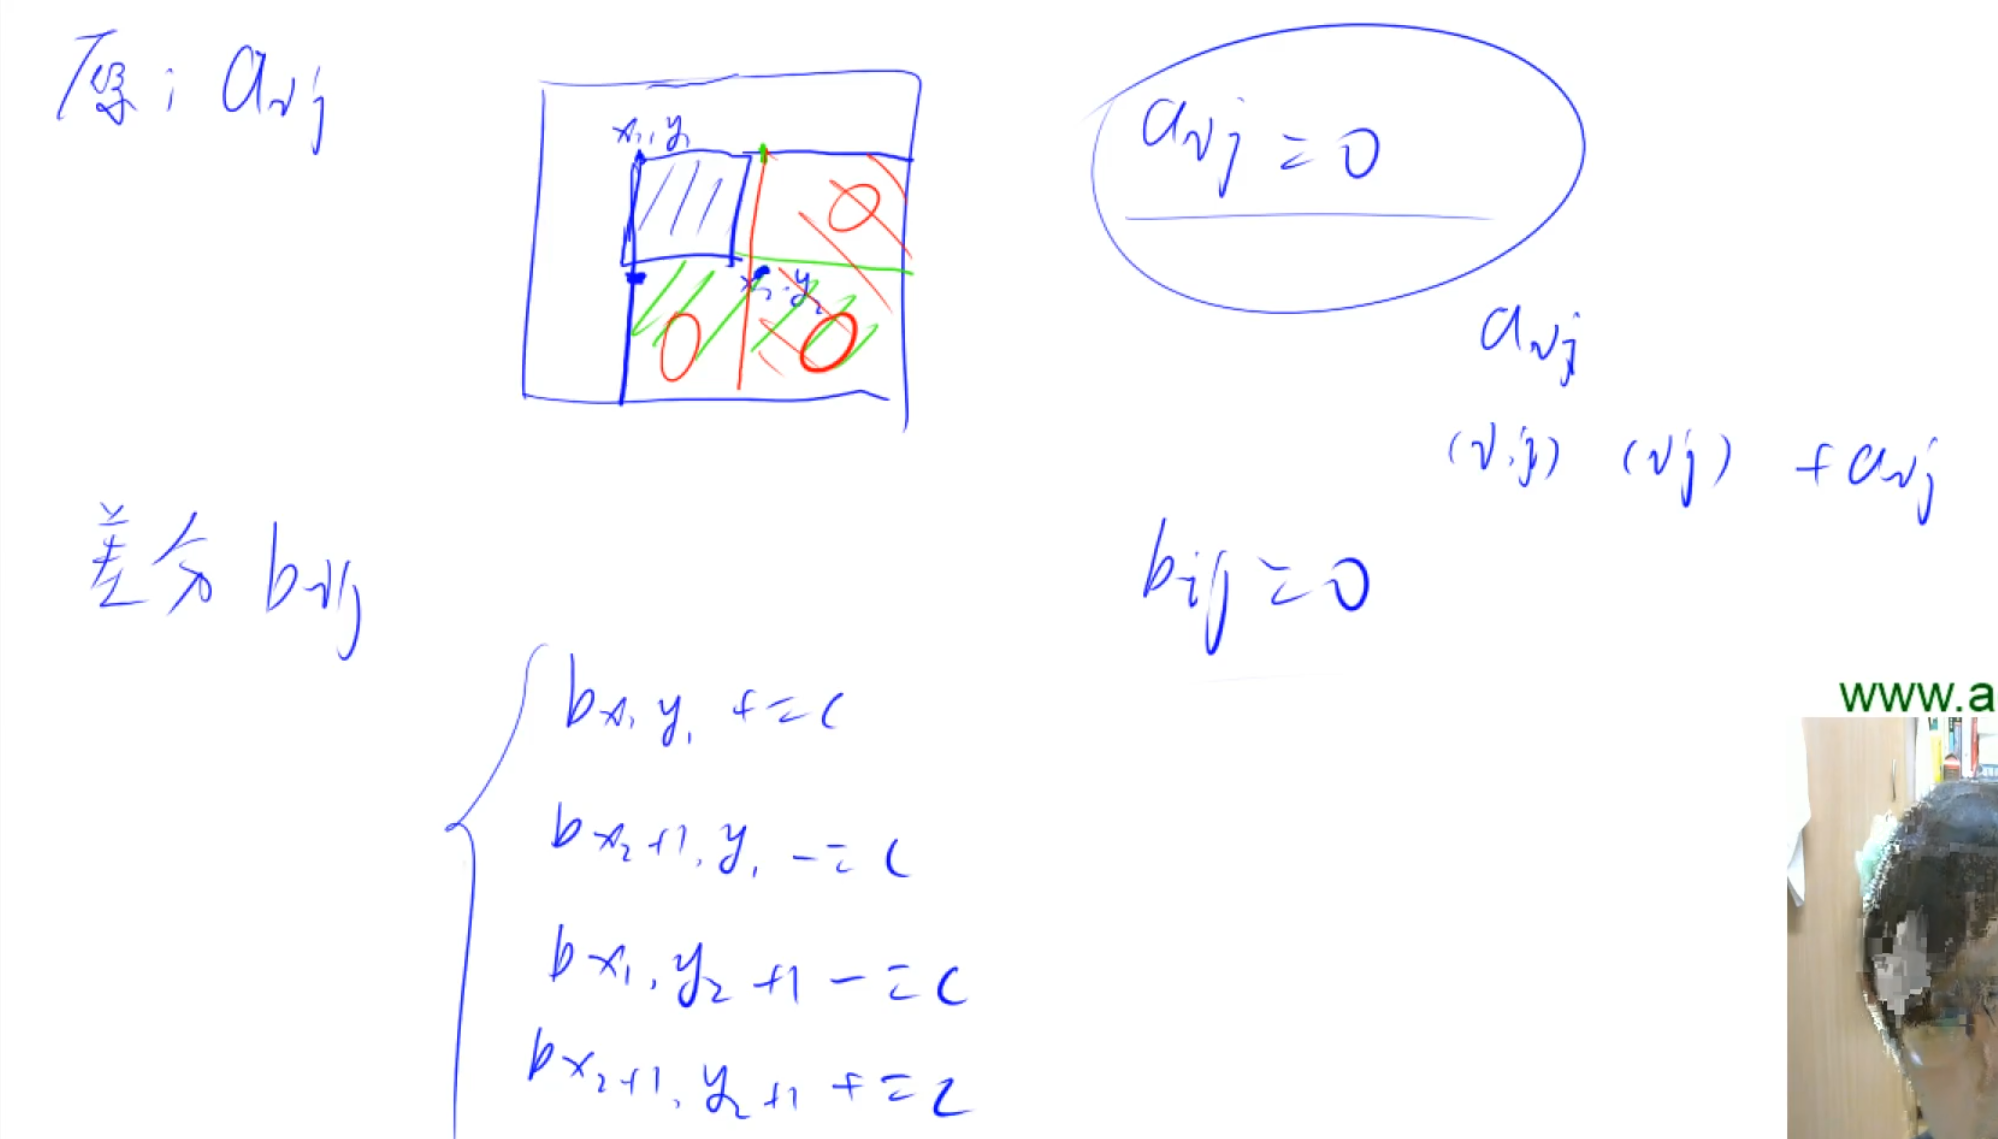 原: aij
x1, y1
x2, y2
aij = 0
aij
(i,j) (ij) + aij
差分 bij
bij = 0
bx1 y1 += c
bx2+1, y1 -= c
bx1, y2+1 -= c
bx2+1, y2+1 += c
www.a